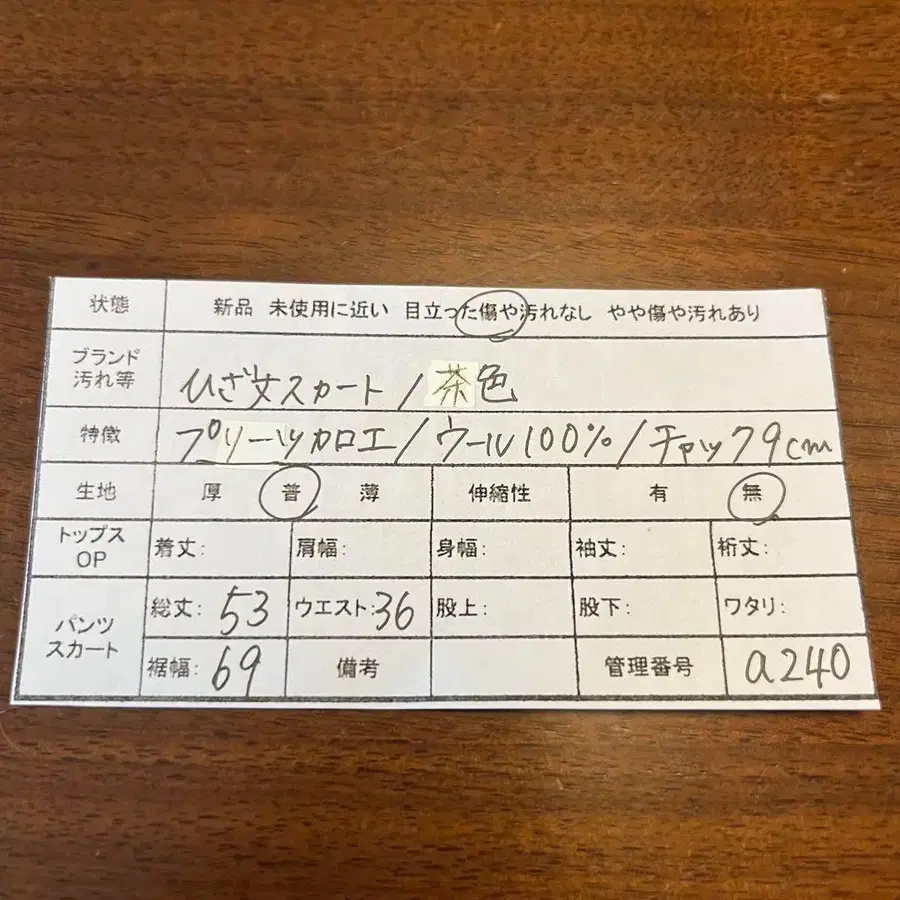 状態 新品 未使用に近い 目立った傷や汚れなし やや傷や汚れあり
ブランド
汚れ等 ひざ丈スカート/茶色
特徴 プリーツ加工/ウール100%/チャック9cm
生地 厚 普 薄 伸縮性 有 無
トップス
OP 着丈: 肩幅: 身幅: 袖丈: 裄丈:
パンツ
スカート 総丈: 53 ウエスト: 36 股上: 股下: ワタリ:
裾幅: 69 備考 管理番号 a240